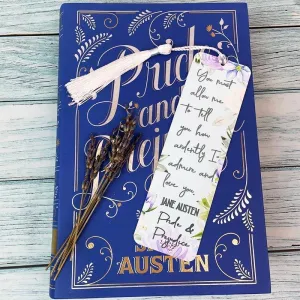 Pride
and
Prejudice
AUSTEN
You must
allow me
to tell
you how
ardently I
admire and
love you.
JANE AUSTEN
Pride &
Prejudice